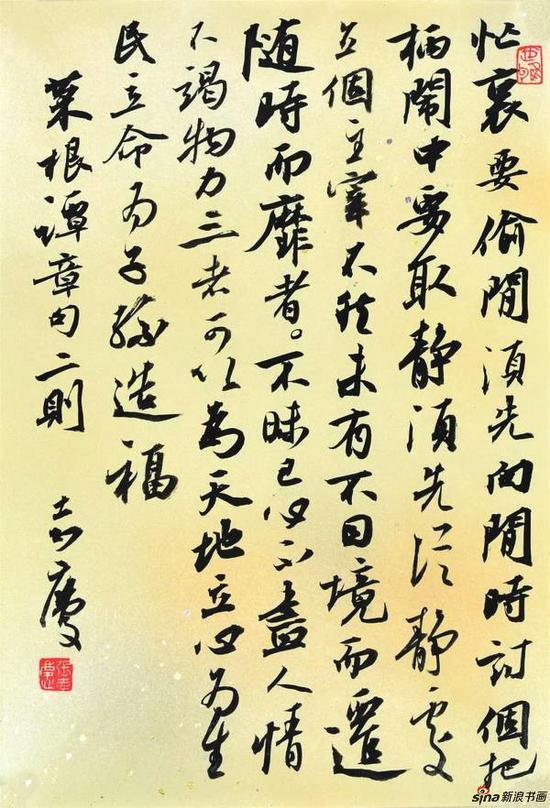 忙裏要偷閒須先向閒時討個把
柄鬧中要取靜須先從靜處
立個主宰不然未有不因境而遷
随時而靡者。不昧己心不盡人情
不竭物力三者可以為天地立心為生
民立命為子孫造福
菜根譚章句二則
志慶
sina新浪书画